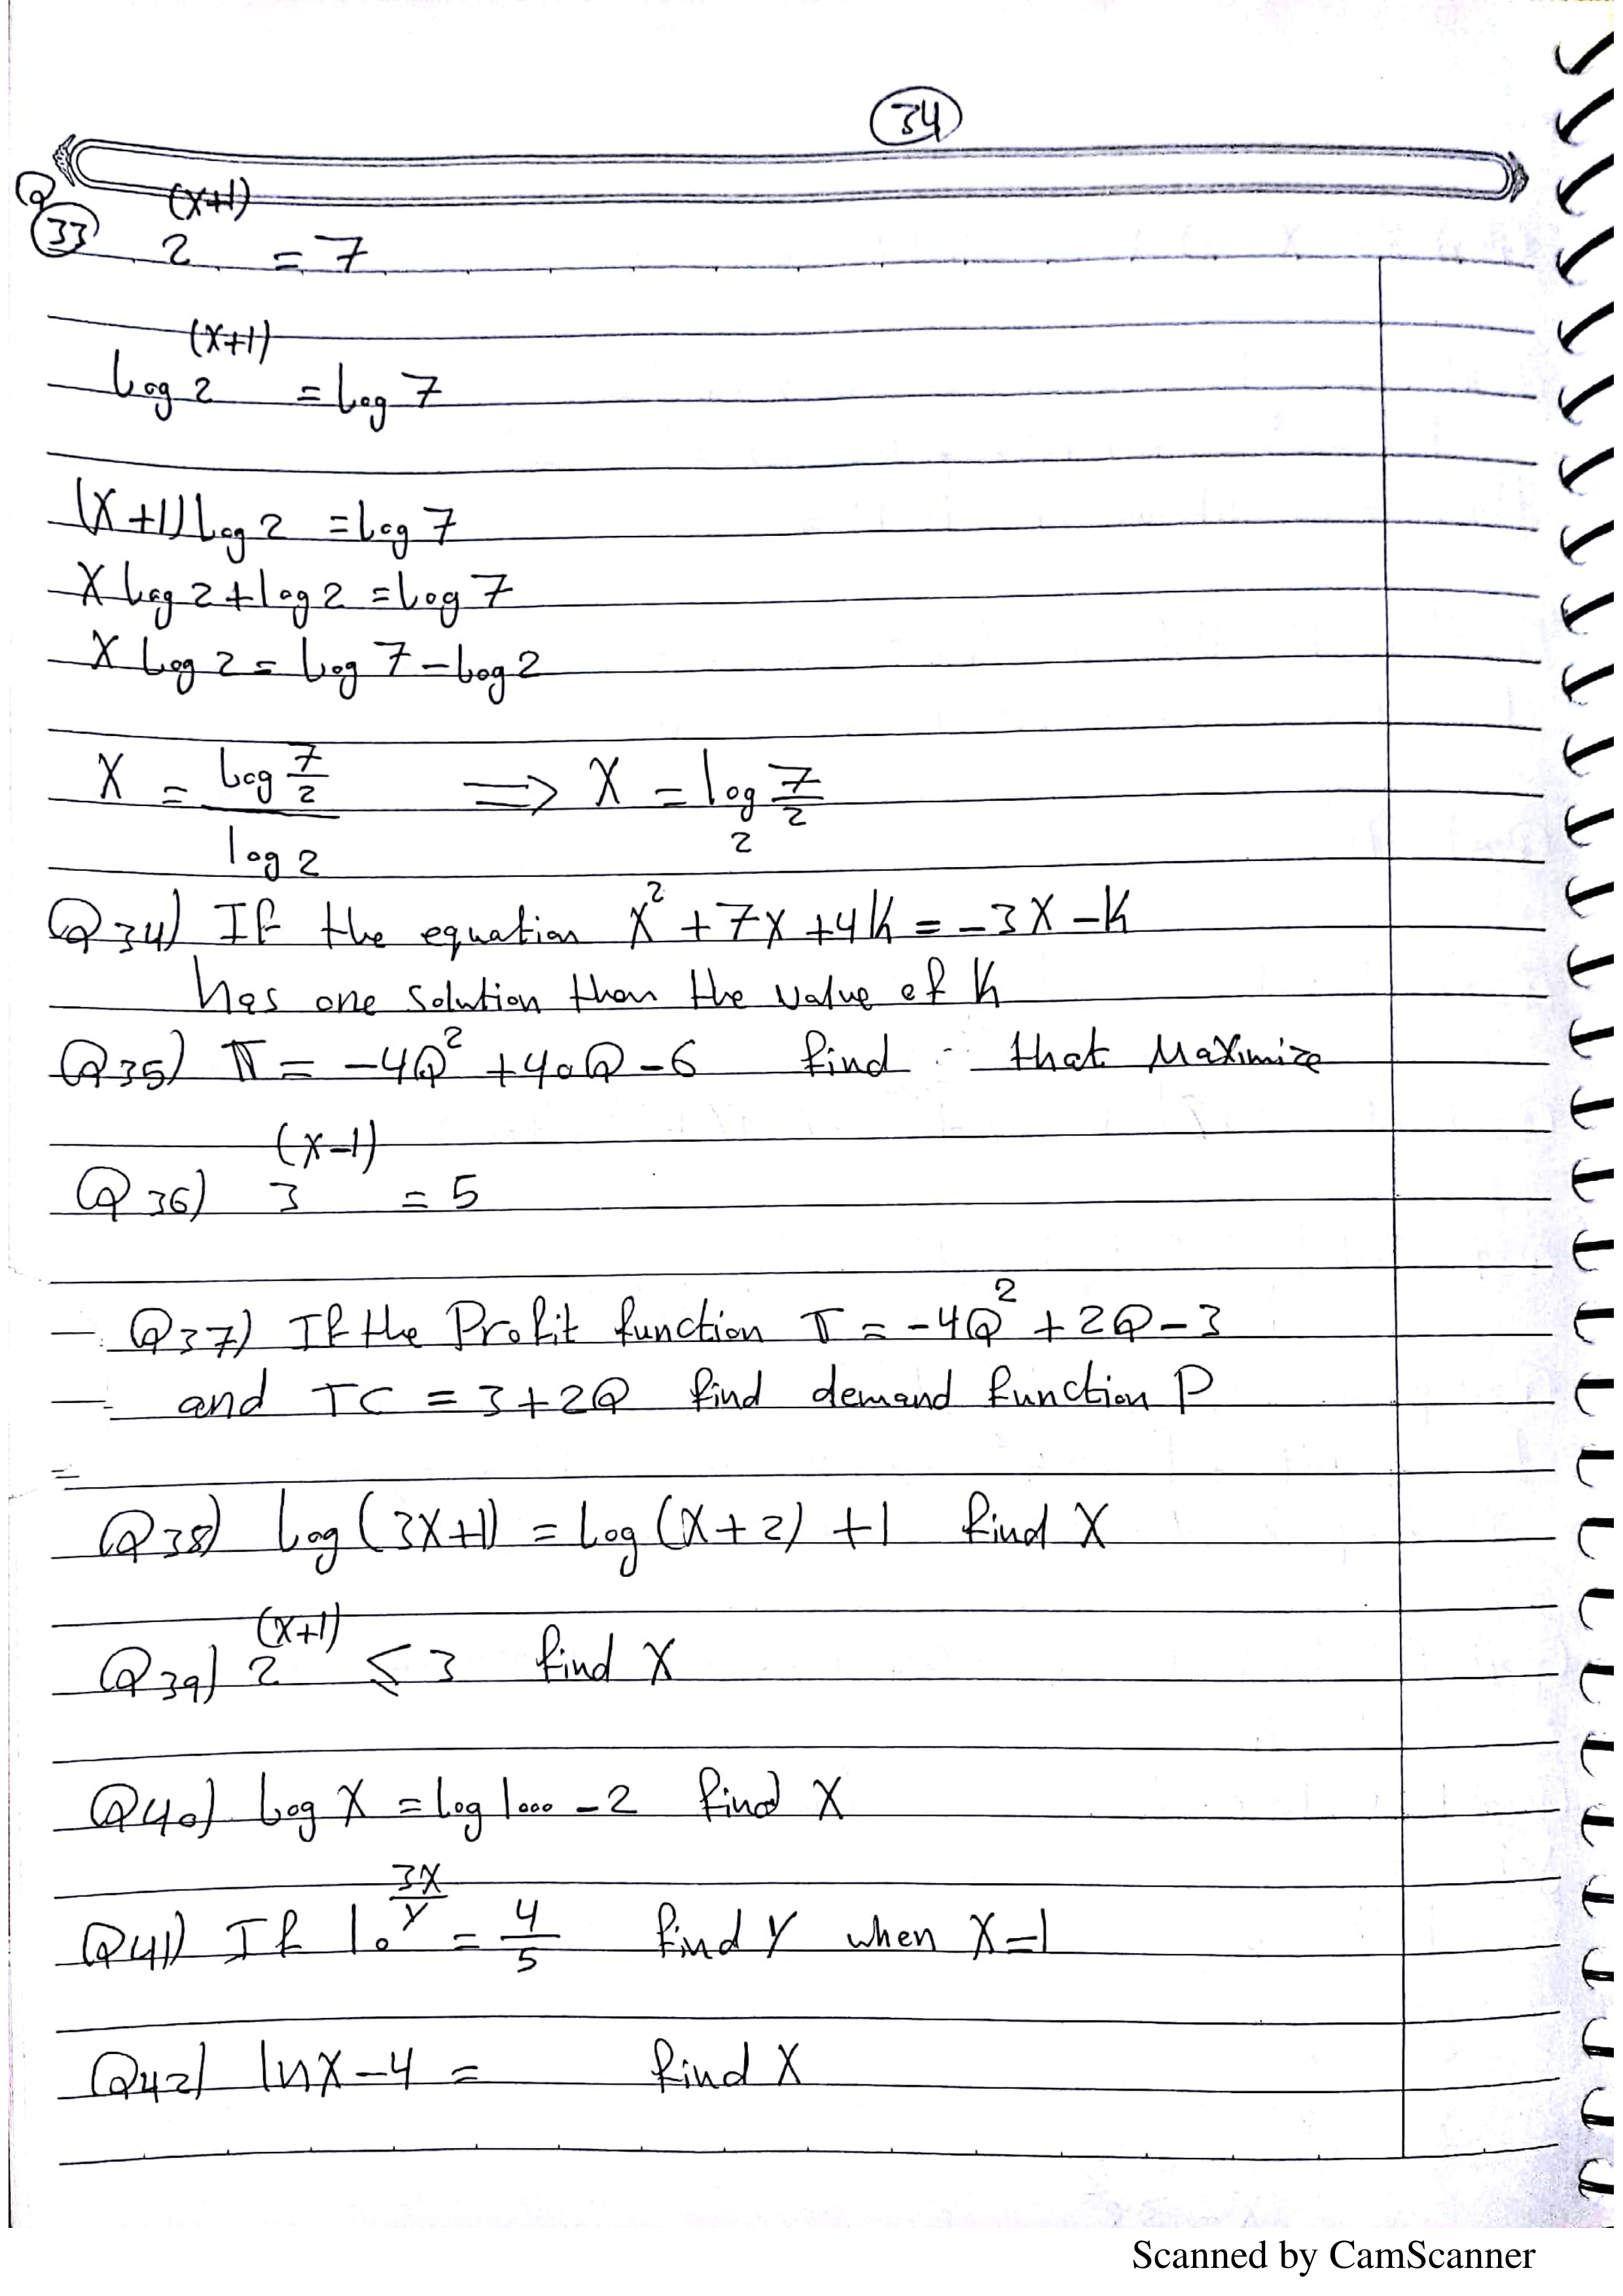 34
Q 33 2^(x+1) = 7
log 2^(x+1) = log 7
(x+1) log 2 = log 7
x log 2 + log 2 = log 7
x log 2 = log 7 - log 2
x = log 7/2 / log 2 ⟹ x = log₂ 7/2
Q34) If the equation x² + 7x + 4k = -3x - k
has one solution then the value of k
Q35) π = -4Q² + 40Q - 6 find that Maximize
Q36) 3^(x-1) = 5
Q37) If the Profit function π = -4Q² + 2Q - 3
and TC = 3 + 2Q find demand function P
Q38) log (3x+1) = log (x+2) + 1 find x
Q39) 2^(x+1) ≤ 3 find x
Q40) log x = log 1000 - 2 find x
Q41) If 10^(3x/y) = 4/5 find y when x = 1
Q42) ln x - 4 = find x
Scanned by CamScanner